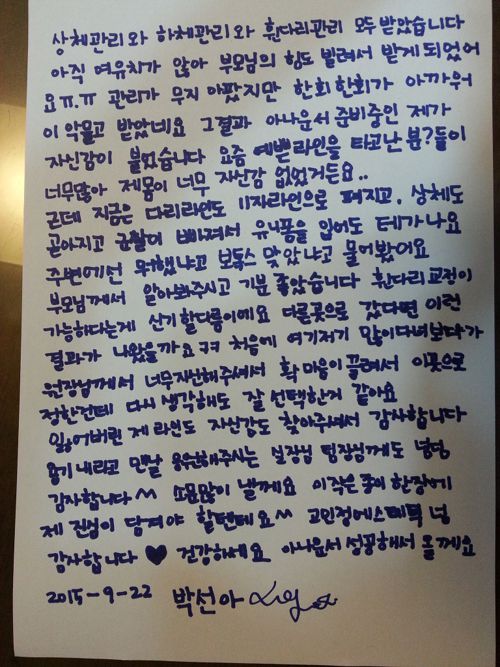 상체관리와 하체관리와 휜다리관리 모두 받았습니다
아직 여유치가 않아 부모님의 힘도 빌려서 받게 되었어
요ㅠ.ㅠ 관리가 무지 아팠지만 한회 한회가 아까워
이 악물고 받았네요 그결과 아나운서 준비중인 제가
자신감이 붙었습니다 요즘 예쁜라인을 타고난 분?들이
너무많아 제몸이 너무 자신감 없었거든요..
근데 지금은 다리라인도 11자라인으로 펴지고, 상체도
곧아지고 군살이 빠져서 유니폼을 입어도 테가나요
주변에선 뭐했냐고 보톡스 맞았냐고 물어봤어요
부모님께서 알아봐주시고 기분 좋았습니다 휜다리교정이
가능하다는게 신기할따름이에요 다른곳으로 갔다면 이런
결과가 나왔을까요ㅋㅋ 처음에 여기저기 많이다녀보다가
원장님께서 너무자신해주셔서 확 마음이 끌려서 이곳으로
정한건데 다시 생각해도 잘 선택한거 같아요
잃어버린 제 라인도 자신감도 찾아주셔서 감사합니다
용기내라고 맨날 응원해주시는 실장님 팀장님께도 넘넘
감사합니다^^ 소문많이 낼께요 이작은 종이 한장에
제 진심이 담겨야 할텐데요^^ 고민정에스테틱 넘
감사합니다 ♥ 건강하세요 아나운서 성공해서 올께요
2015-9-22 박선아